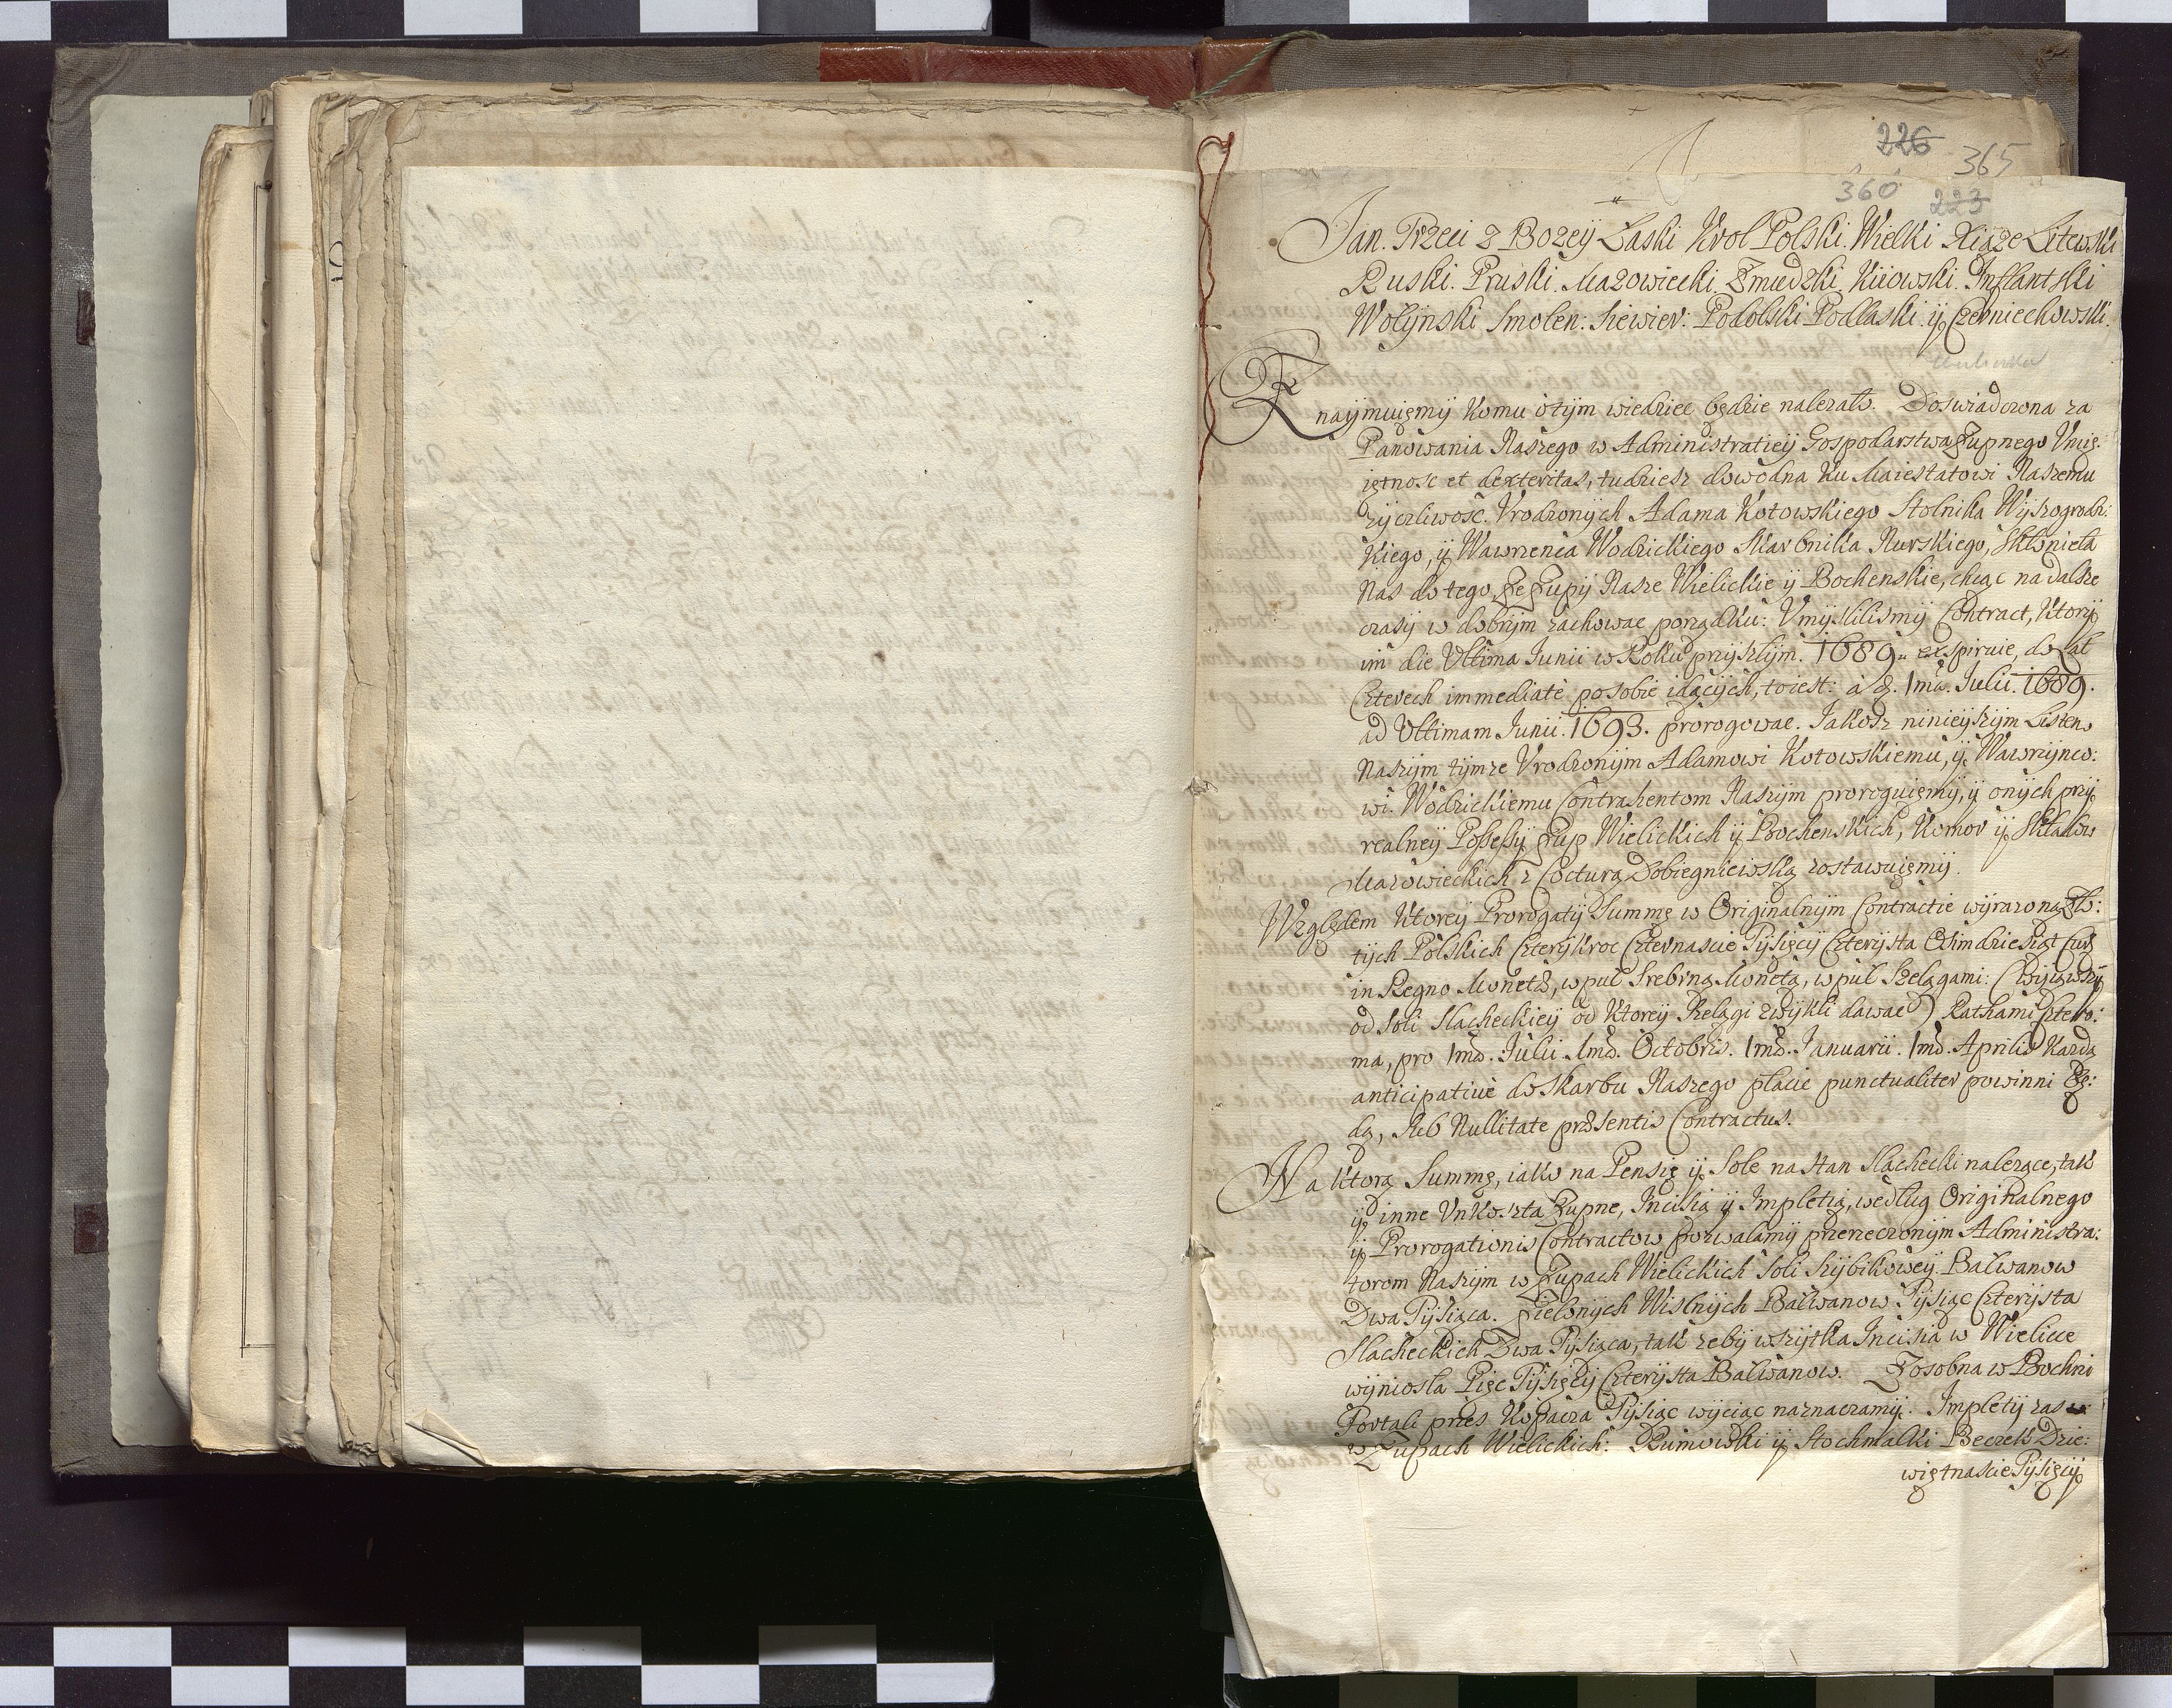 226
365
360
223
Jan. Trzeci z Bozey Laski Krol Polski. Wielki Xiąze Litewski
Ruski. Pruski. Mazowiecki. Zmudzki, Kiiowski. Inflantski
Wołÿnski Smolen: Siewier: Podolski Podlaski. ÿ Czerniechowski.
Znaÿmuięmÿ Komu o tÿm wiedziec będzie nalezało. Doswiadczona za
Panowania Naszego w Administratieÿ Gospodarstwa Zupnego Vmię:
iętnosc et dexteritas, tudziesz dowodna Ku Maiestatowi Naszemu
zÿczliwosc. Vrodzonÿch Adama Kotowskiego Stolnika Wÿszogrodz:
kiego, ÿ Wawrzenca Wodzickiego Skarbnika Nurskiego, Skłonieła
Nas do tego, ze Zupÿ Nasze Wielickie ÿ Bochenskie, chcąc na dalsze
czasÿ w dobrÿm zachowac porządku: Vmÿslilismÿ Contract, Ktorÿ
im die Vltima Junii w Roku przÿszłÿm. 1689. exspiruie, do lat
Czterech immediatè po sobie idącÿch, toiest: à d. 1ma. Julii. 1689.
ad Vltimam Junii. 1693. prorogowac. Jakosz ninieÿszÿm Listem
Naszÿm tÿmze Vrodzonÿm Adamowi Kotowskiemu, ÿ Wawrzÿnco:
wi. Wodzickiemu Contrahentom Naszÿm proroguięmÿ, ÿ onÿch przÿ
realneÿ Possessÿ Zup Wielickich ÿ Bochenskich, Komor ÿ Składow
Mazowieckich z Cocturą Dobiegniewską zostawuięmÿ.
Względem Ktoreÿ Prorogatÿ Summę w Originalnÿm Contractie wÿrazoną Zło:
tÿch Polskich Czterÿkroc Czternascie Tÿsięcÿ Czterÿsta Osimdziesiąt Curr
in Regno Monetæ, w puł Srebrną Monetą, w puł Szelągami: (Wÿiąwszÿ
od Soli Slacheckieÿ od Ktoreÿ Szelągi zwÿkli dawac) Rathami Cztero:
ma, pro 1ma. Julii. 1ma. Octobris. 1ma. Januarii. 1ma. Aprilis Kazdą
anticipativè do Skarbu Naszego płacic punctualiter powinni Bę:
dą, Sub Nullitate præsentis Contractus.
Na Ktorą Summę, iako na Pensię ÿ Sole na Stan Slachecki nalezące, tak
ÿ inne Vnkoszta Zupne, Incisią ÿ Impletią, według Originalnego
ÿ Prorogationis Contractow pozwalamÿ przerzeczonÿm Administra:
torom Naszÿm w Zupach Wielickich Soli Szÿbikoweÿ Bałwanow
Dwa Tÿsiąca. Zielonÿch Wislnÿch Bałwanow Tÿsiąc Czterÿsta
Slacheckich Dwa Tÿsiąca, tak zebÿ wszÿtka Incisia w Wielicce
wÿniosła Pięc Tÿsięcÿ Czterÿsta Bałwanow. Zosobna w Bochni
Fortali przes Kopacza Tÿsiąc wÿciąc naznaczamÿ. Impletÿ zas
w Zupach Wielickich: Rumowski ÿ Stochmalki Beczek Dzie:
więtnascie Tÿsięcÿ